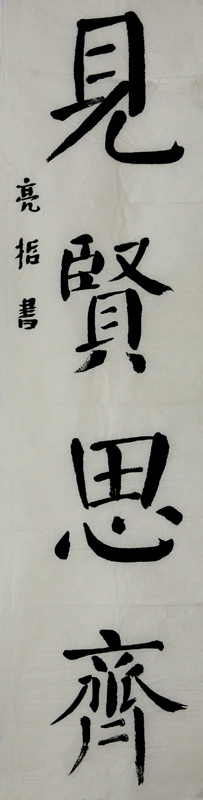 見賢思齊
亮指書